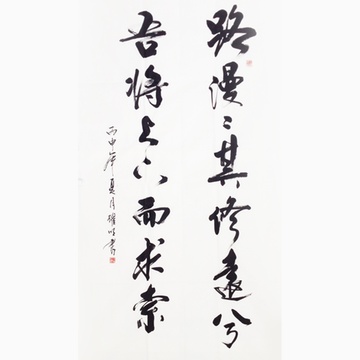 路漫漫其修遠兮
吾将上下而求索
丙申年夏月耀明書